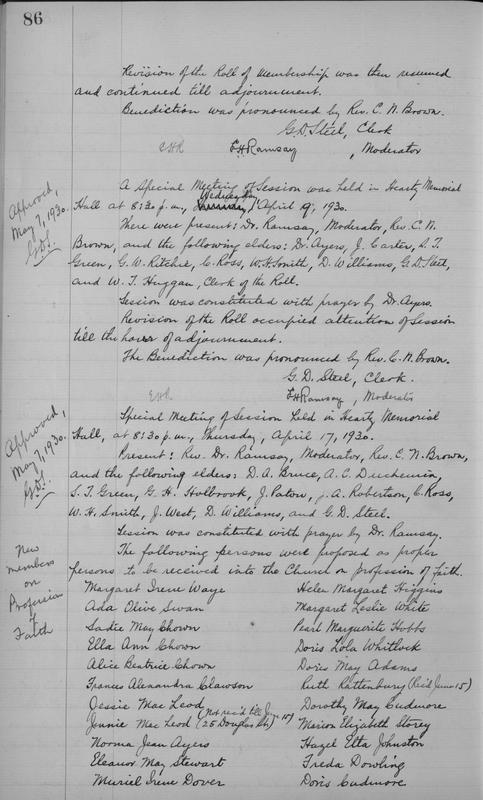 86
Revision of the Roll of Membership was then resumed
and continued till adjournment.
Benediction was pronounced by Rev. C. N. Brown.
G. D. Steel, Clerk
EHR EHRamsay, Moderator
Approved,
May 7, 1930.
G.D.S.
A Special Meeting of Session was held in Hearty Memorial
Wednesday
Hall at 8:30 p.m., Thursday, April 9, 1930.
There were present: Dr. Ramsay, Moderator, Rev. C. N.
Brown, and the following elders: Dr. Ayers, J. Carter, S. T.
Green, G. W. Ritchie, C. Ross, W. H. Smith, D. Williams, G. D. Steel,
and W. T. Huggan, Clerk of the Roll.
Session was constituted with prayer by Dr. Ayers.
Revision of the Roll occupied attention of Session
till the hour of adjournment.
The Benediction was pronounced by Rev. C. N. Brown.
G. D. Steel, Clerk.
EHR EHRamsay, Moderator
Approved,
May 7, 1930.
G.D.S.
Special Meeting of Session held in Hearty Memorial
Hall, at 8:30 p.m., Thursday, April 17, 1930.
Present: Rev. Dr. Ramsay, Moderator, Rev. C. N. Brown,
and the following elders: D. A. Bruce, A. C. Duchemin,
S. T. Green, G. H. Holbrook, J. Paton, J. A. Robertson, C. Ross,
W. H. Smith, J. West, D. Williams, and G. D. Steel.
Session was constituted with prayer by Dr. Ramsay.
The following persons were proposed as proper
persons to be received into the Church on profession of faith.
New
members
on
Profession
of
Faith
Margaret Irene Waye Helen Margaret Higgins
Ada Olive Swan Margaret Leslie White
Sadie May Chown Pearl Marguerite Hobbs
Ella Ann Chown Doris Lola Whitlock
Alice Beatrice Chown Doris May Adams
Frances Alexandra Clawson Ruth Rattenbury (Rec'd June 15)
Jessie Mac Leod Dorothy May Cudmore
Jennie Mac Leod (Not rec'd till June 15) (25 Douglas St.) Marion Elizabeth Storey
Norma Jean Ayers Hazel Etta Johnston
Eleanor May Stewart Freda Dowling
Muriel Irene Dover Doris Cudmore